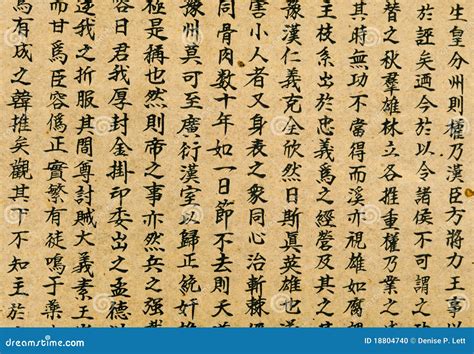 生皇分州則權乃漢臣方將力王事以
於誣矣迺今於以今諸侯不可謂之
昔之秋羣雄林立各推重權乃業之
其時無功不當得而溪亦視雄如腐
主枝系出於忠義爲之經營及其
豫漢仁義克全欣然日斯眞英雄也
害小人者又身表之衆同心治斬棘
同骨肉数十年如一日節不去則天
豫州莫可至廣衍漢室以歸正統奸
極是稱也然則帝之事亦然兵之強
容日君我厚封金掛印委出之孟德以
逆我之折服其間尊討賊大義素王
而甘爲臣容僞正實繁有徒鳴于藥
馬有成之韓推矣觀其下不知主於
dreamstime.com
ID 18804740 © Denise P. Lett